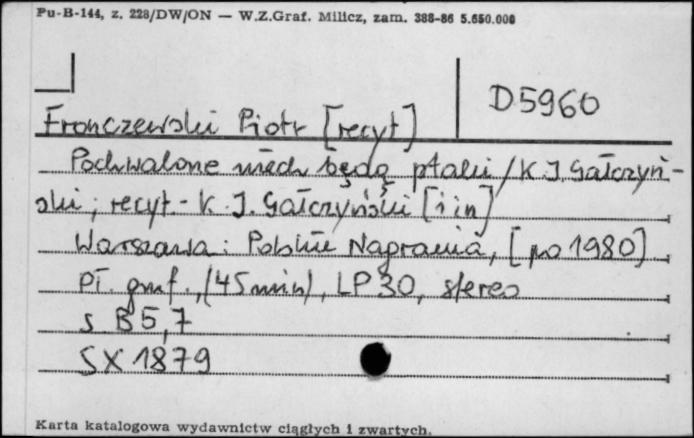 Pu-B-144, z. 228/DW/ON — W.Z.Graf. Milicz, zam. 388-86 5.650.000
D5960
Fronczewski Piotr [recyt]
Pochwalone niech będą ptaki / K. I. Gałczyń-
ski ; recyt. - K. I. Gałczyński [i in]
Warszawa : Polskie Nagrania, [po 1980]
Pł. gmf., (45 min), LP 30, stereo
s B5,7
SX 1879
Karta katalogowa wydawnictw ciągłych i zwartych.